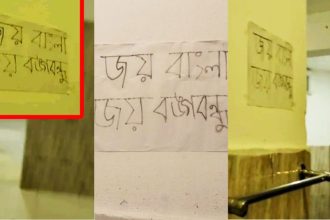 জয় বাংলা
জয় বঙ্গবন্ধু
জয় বাংলা
জয় বঙ্গবন্ধু
জয় বাংলা
জয় বঙ্গবন্ধু